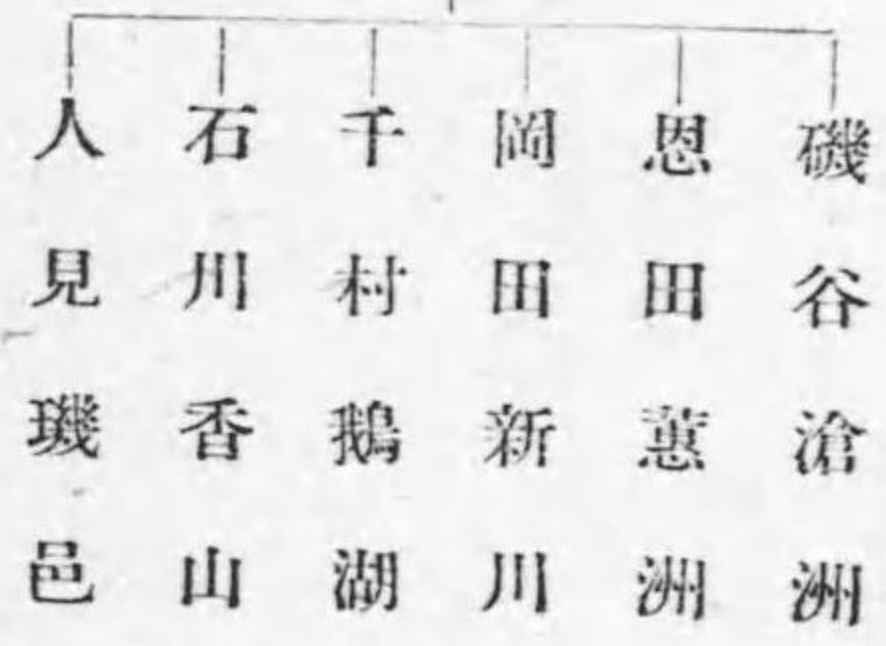 磯谷滄洲
恩田蕙洲
岡田新川
千村鵝湖
石川香山
人見璣邑